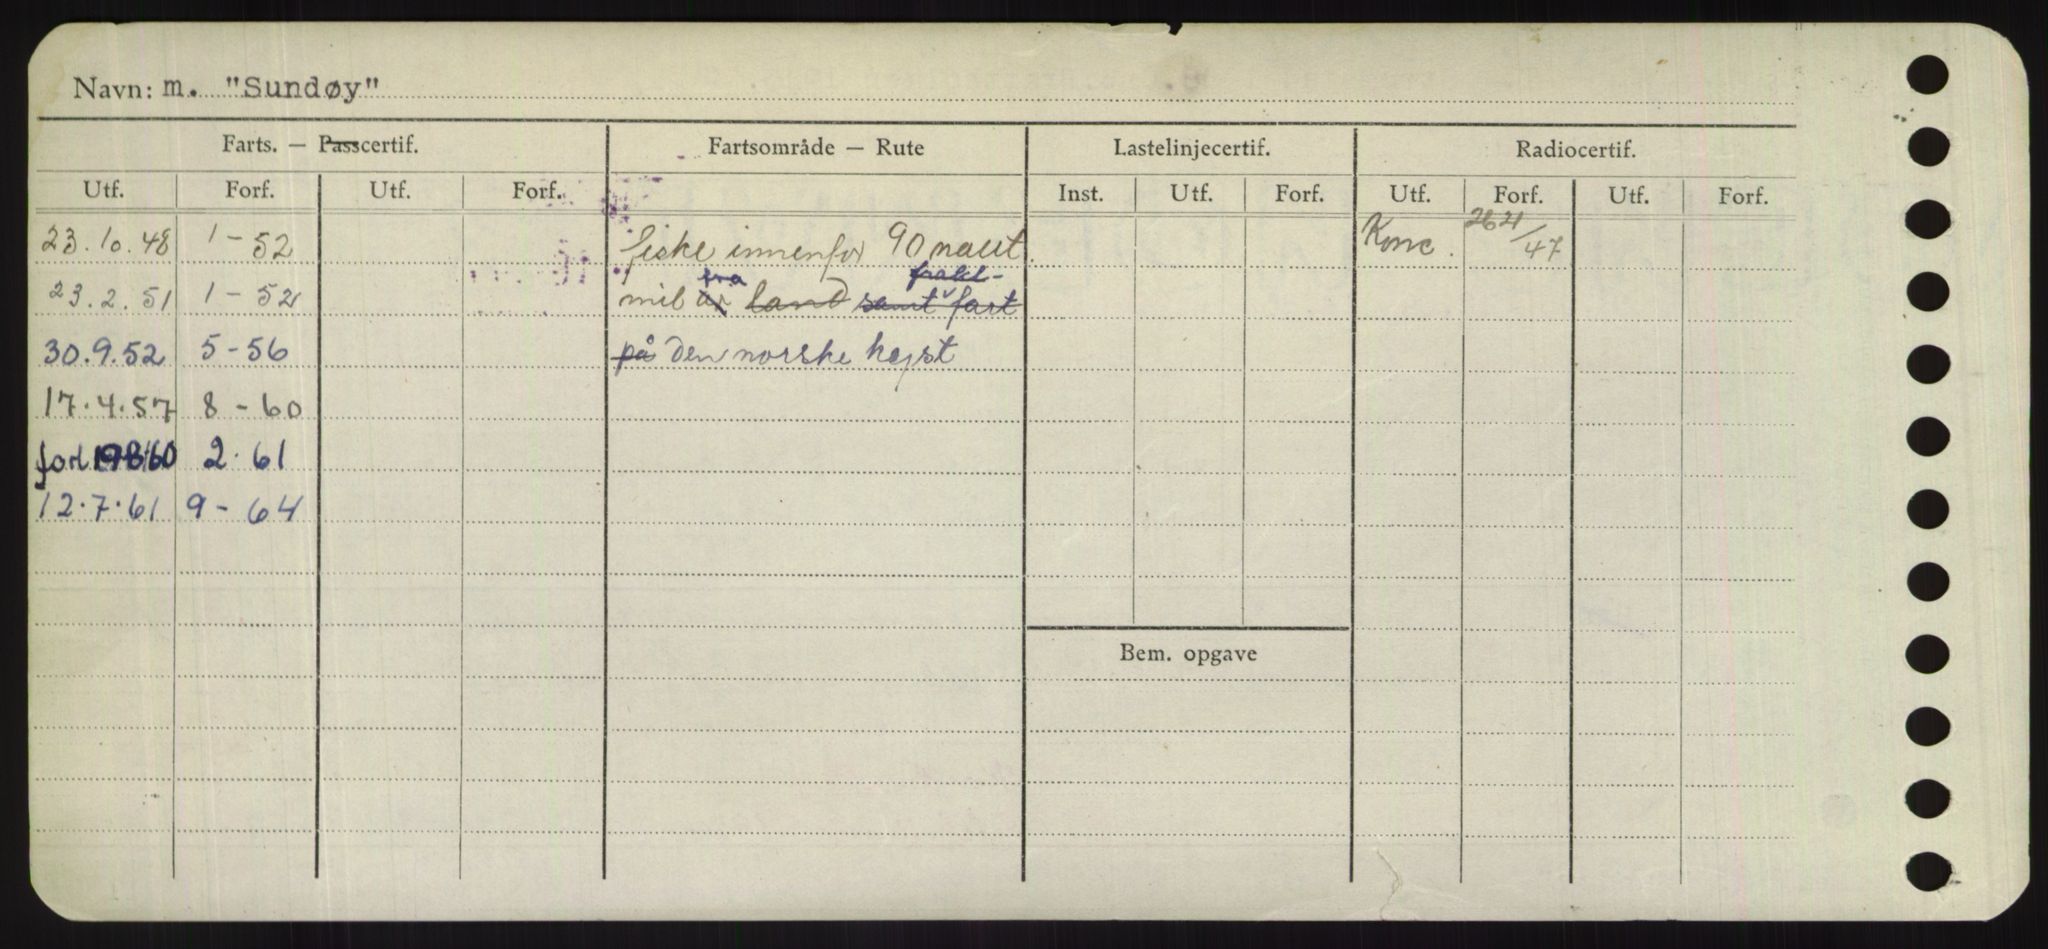 Navn: m. "Sundøy"
Farts. — Passcertif. Fartsområde — Rute Lastelinjecertif. Radiocertif.
Utf. Forf. Utf. Forf. Inst. Utf. Forf. Utf. Forf. Utf. Forf.
23.10.48 1-52 fiske innenfor 90 naut. Konc. /47
fra frakt-
23.2.51 1-52 mil av land samt fart
30.9.52 5-56 på den norske kyst
17.4.57 8-60
forl. 19860 2.61
12.7.61 9-64
Bem. opgave